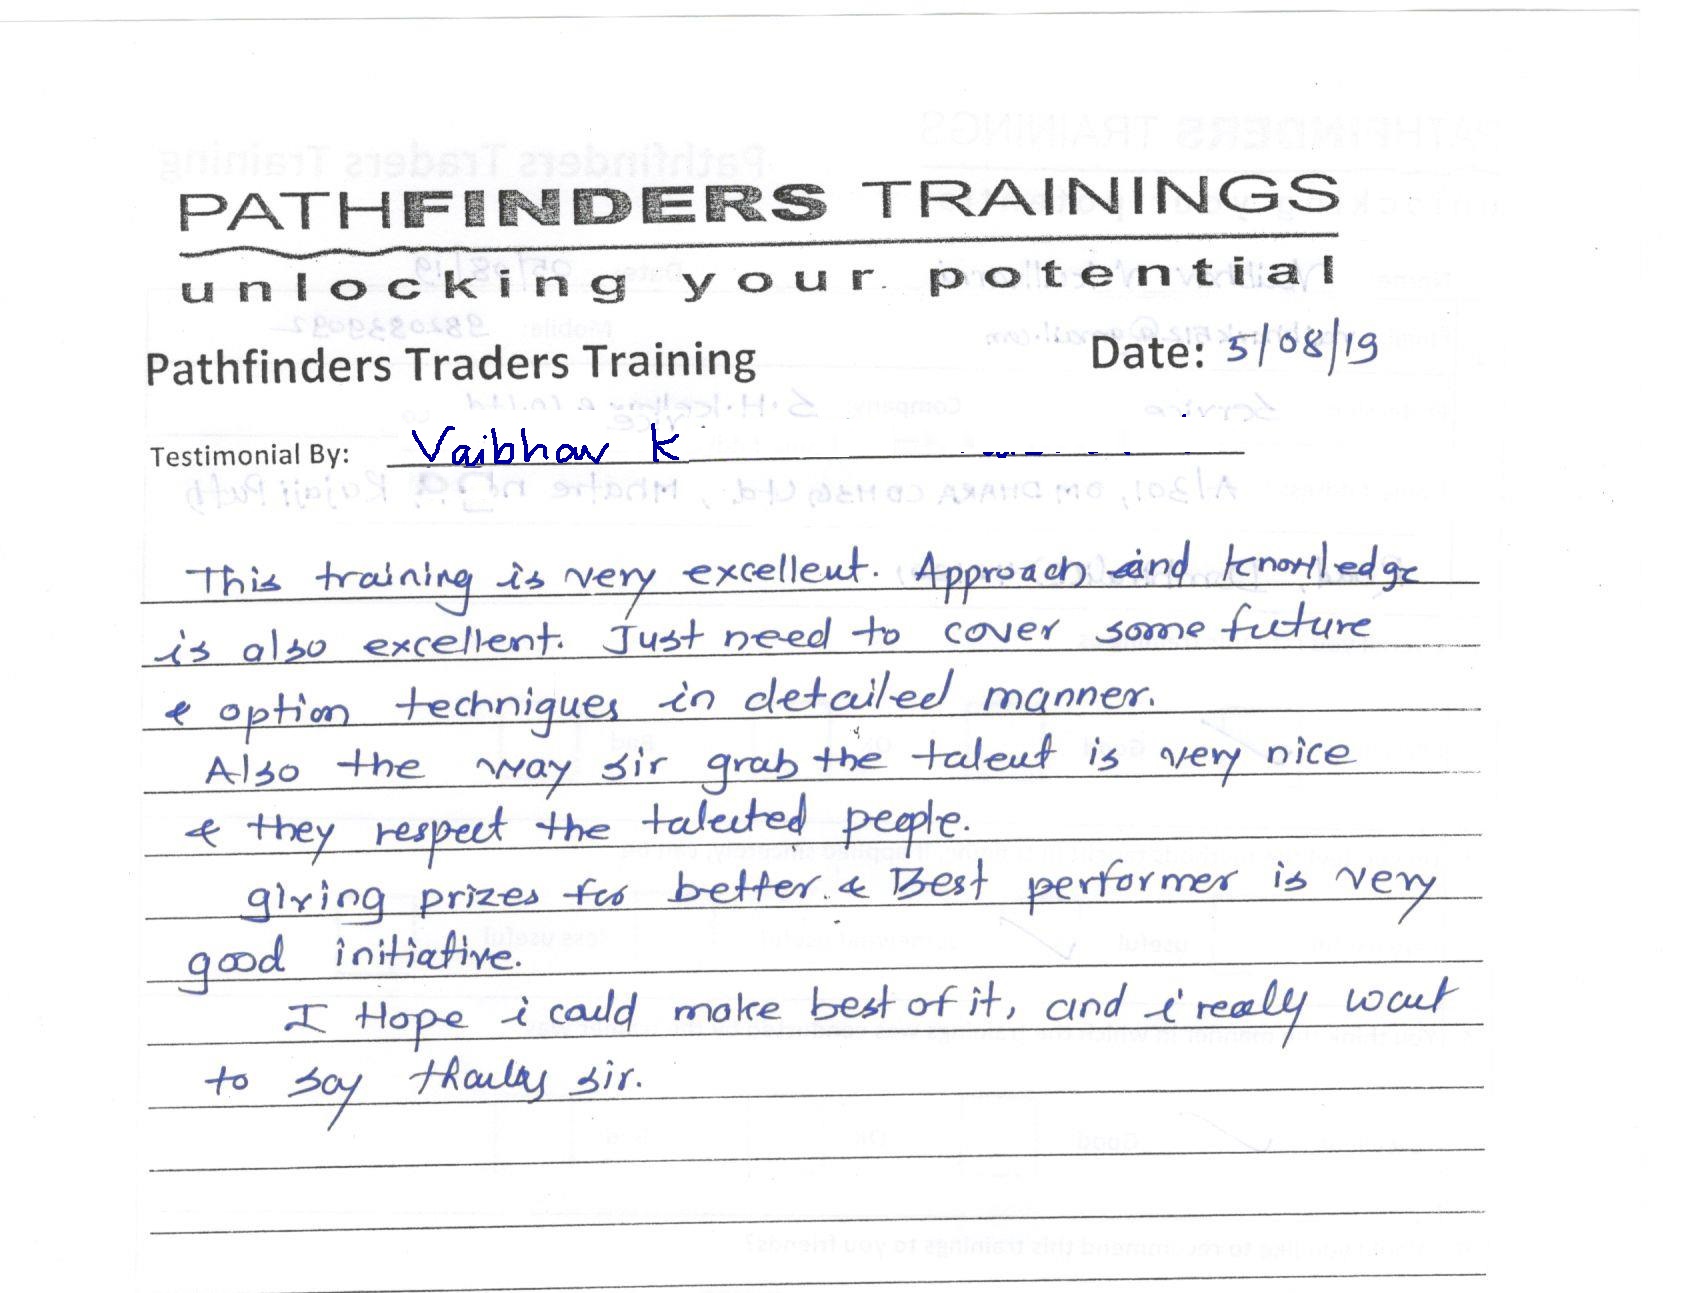 PATHFINDERS TRAININGS
unlocking your potential
Pathfinders Traders Training Date: 5/08/19
Testimonial By: Vaibhav K
This training is very excellent. Approach and knowledge
is also excellent. Just need to cover some future
& option techniques in detailed manner.
Also the way sir grab the talent is very nice
& they respect the talented people.
giving prizes for better & Best performer is very
good initiative.
I Hope i could make best of it, and i really want
to say thanks sir.